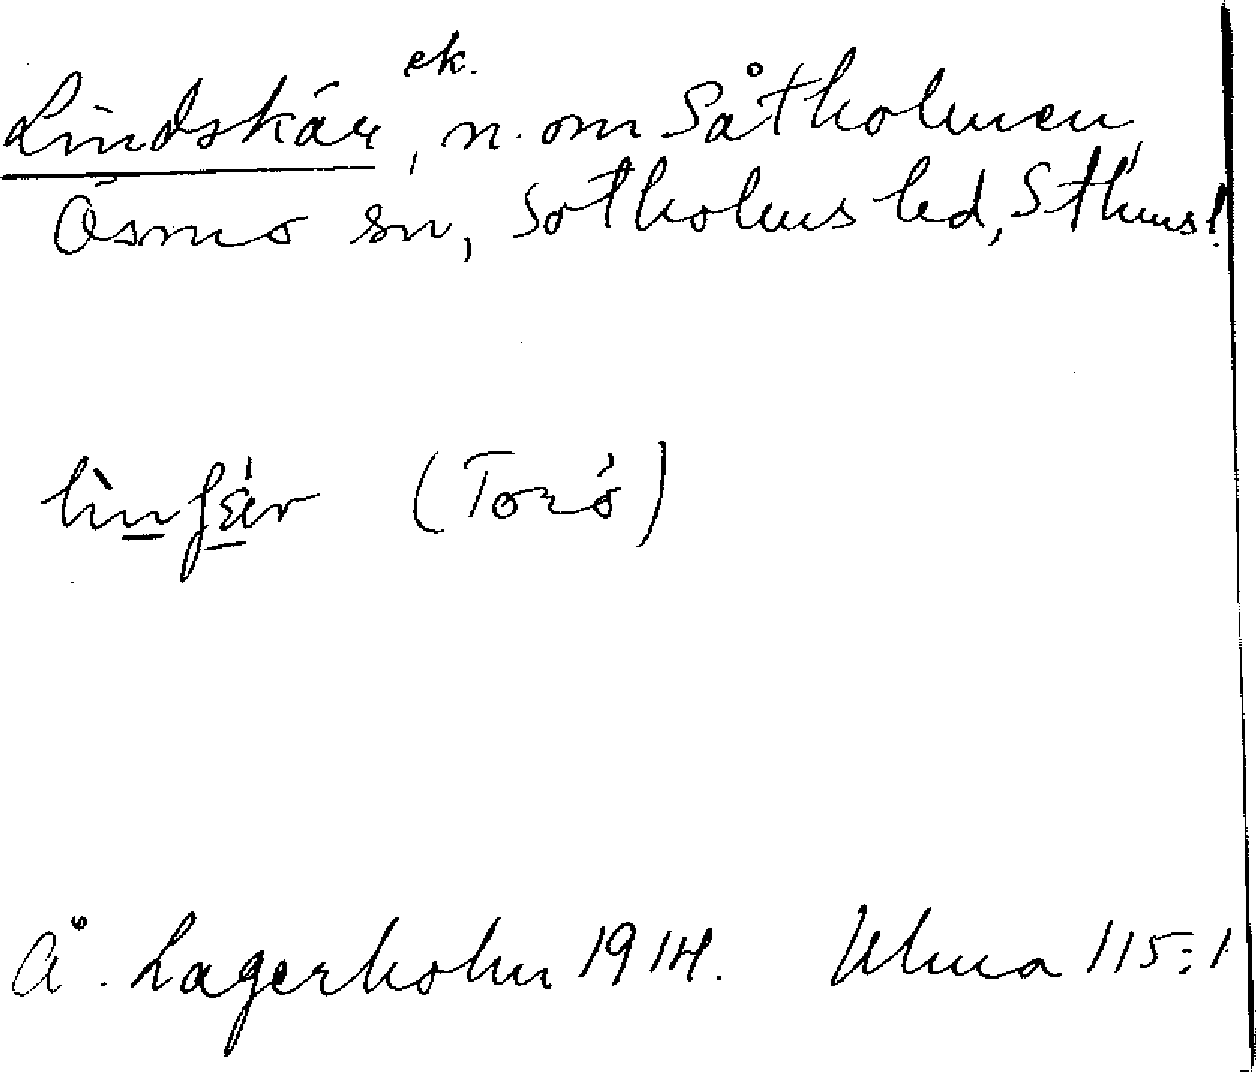 Lindskär, ek. n. om Såtholmen,
Ösmo sn, Sotholms hd, Sthms l.
(Torö)
Å. Lagerholm 1914. Ulma 115:1